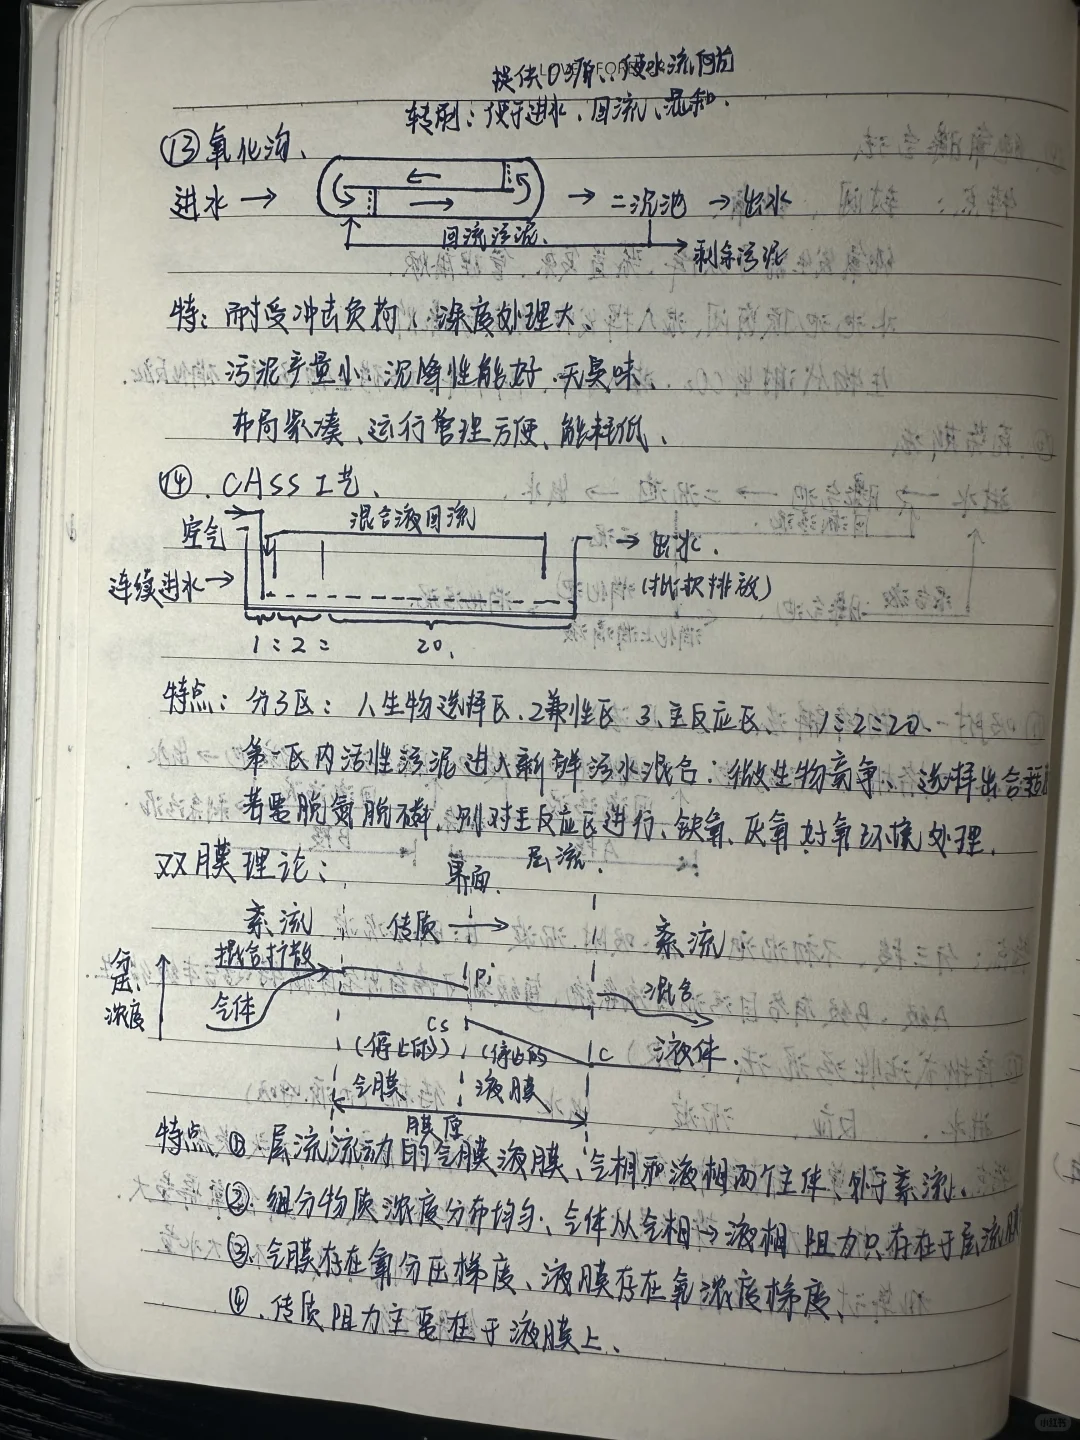 提供O₂
使水流向前
转刷:便于进水、回流、混和.
⑬氧化沟、
进水 → → 二沉池 → 出水
回流污泥.
剩余污泥
特:耐受冲击负荷,深度处理大
污泥产量小.沉降性能好.无臭味
布局紧凑、运行管理方便、能耗低、
⑭、CASS工艺、
混合液回流
空气
→ 出水.
连续进水→
(批次排放)
1:2: 20.
特点:分3区:1.生物选择区.2兼性区 3.主反应区、 1:2:20.
第一区内活性污泥进入新鲜污水混合:微生物竞争、选择出合适
若要脱氮脱磷.则对主反应区进行、缺氧、厌氧、好氧环境处理.
双膜理论:
界面.
层流.
紊流
传质 →
紊流
混合扩散
Pi
混合
浓度
气体
Cs
(停止的)
(停止的
C
液体.
气膜
液膜
膜厚
特点①.层流流动的气膜液膜、气相和液相两个主体,处于紊流.
②.组分物质浓度分布均匀、气体从气相→液相 阻力只存在于层流膜
③.气膜存在氧分压梯度、液膜存在氧浓度梯度、
④.传质阻力主要在于液膜上.